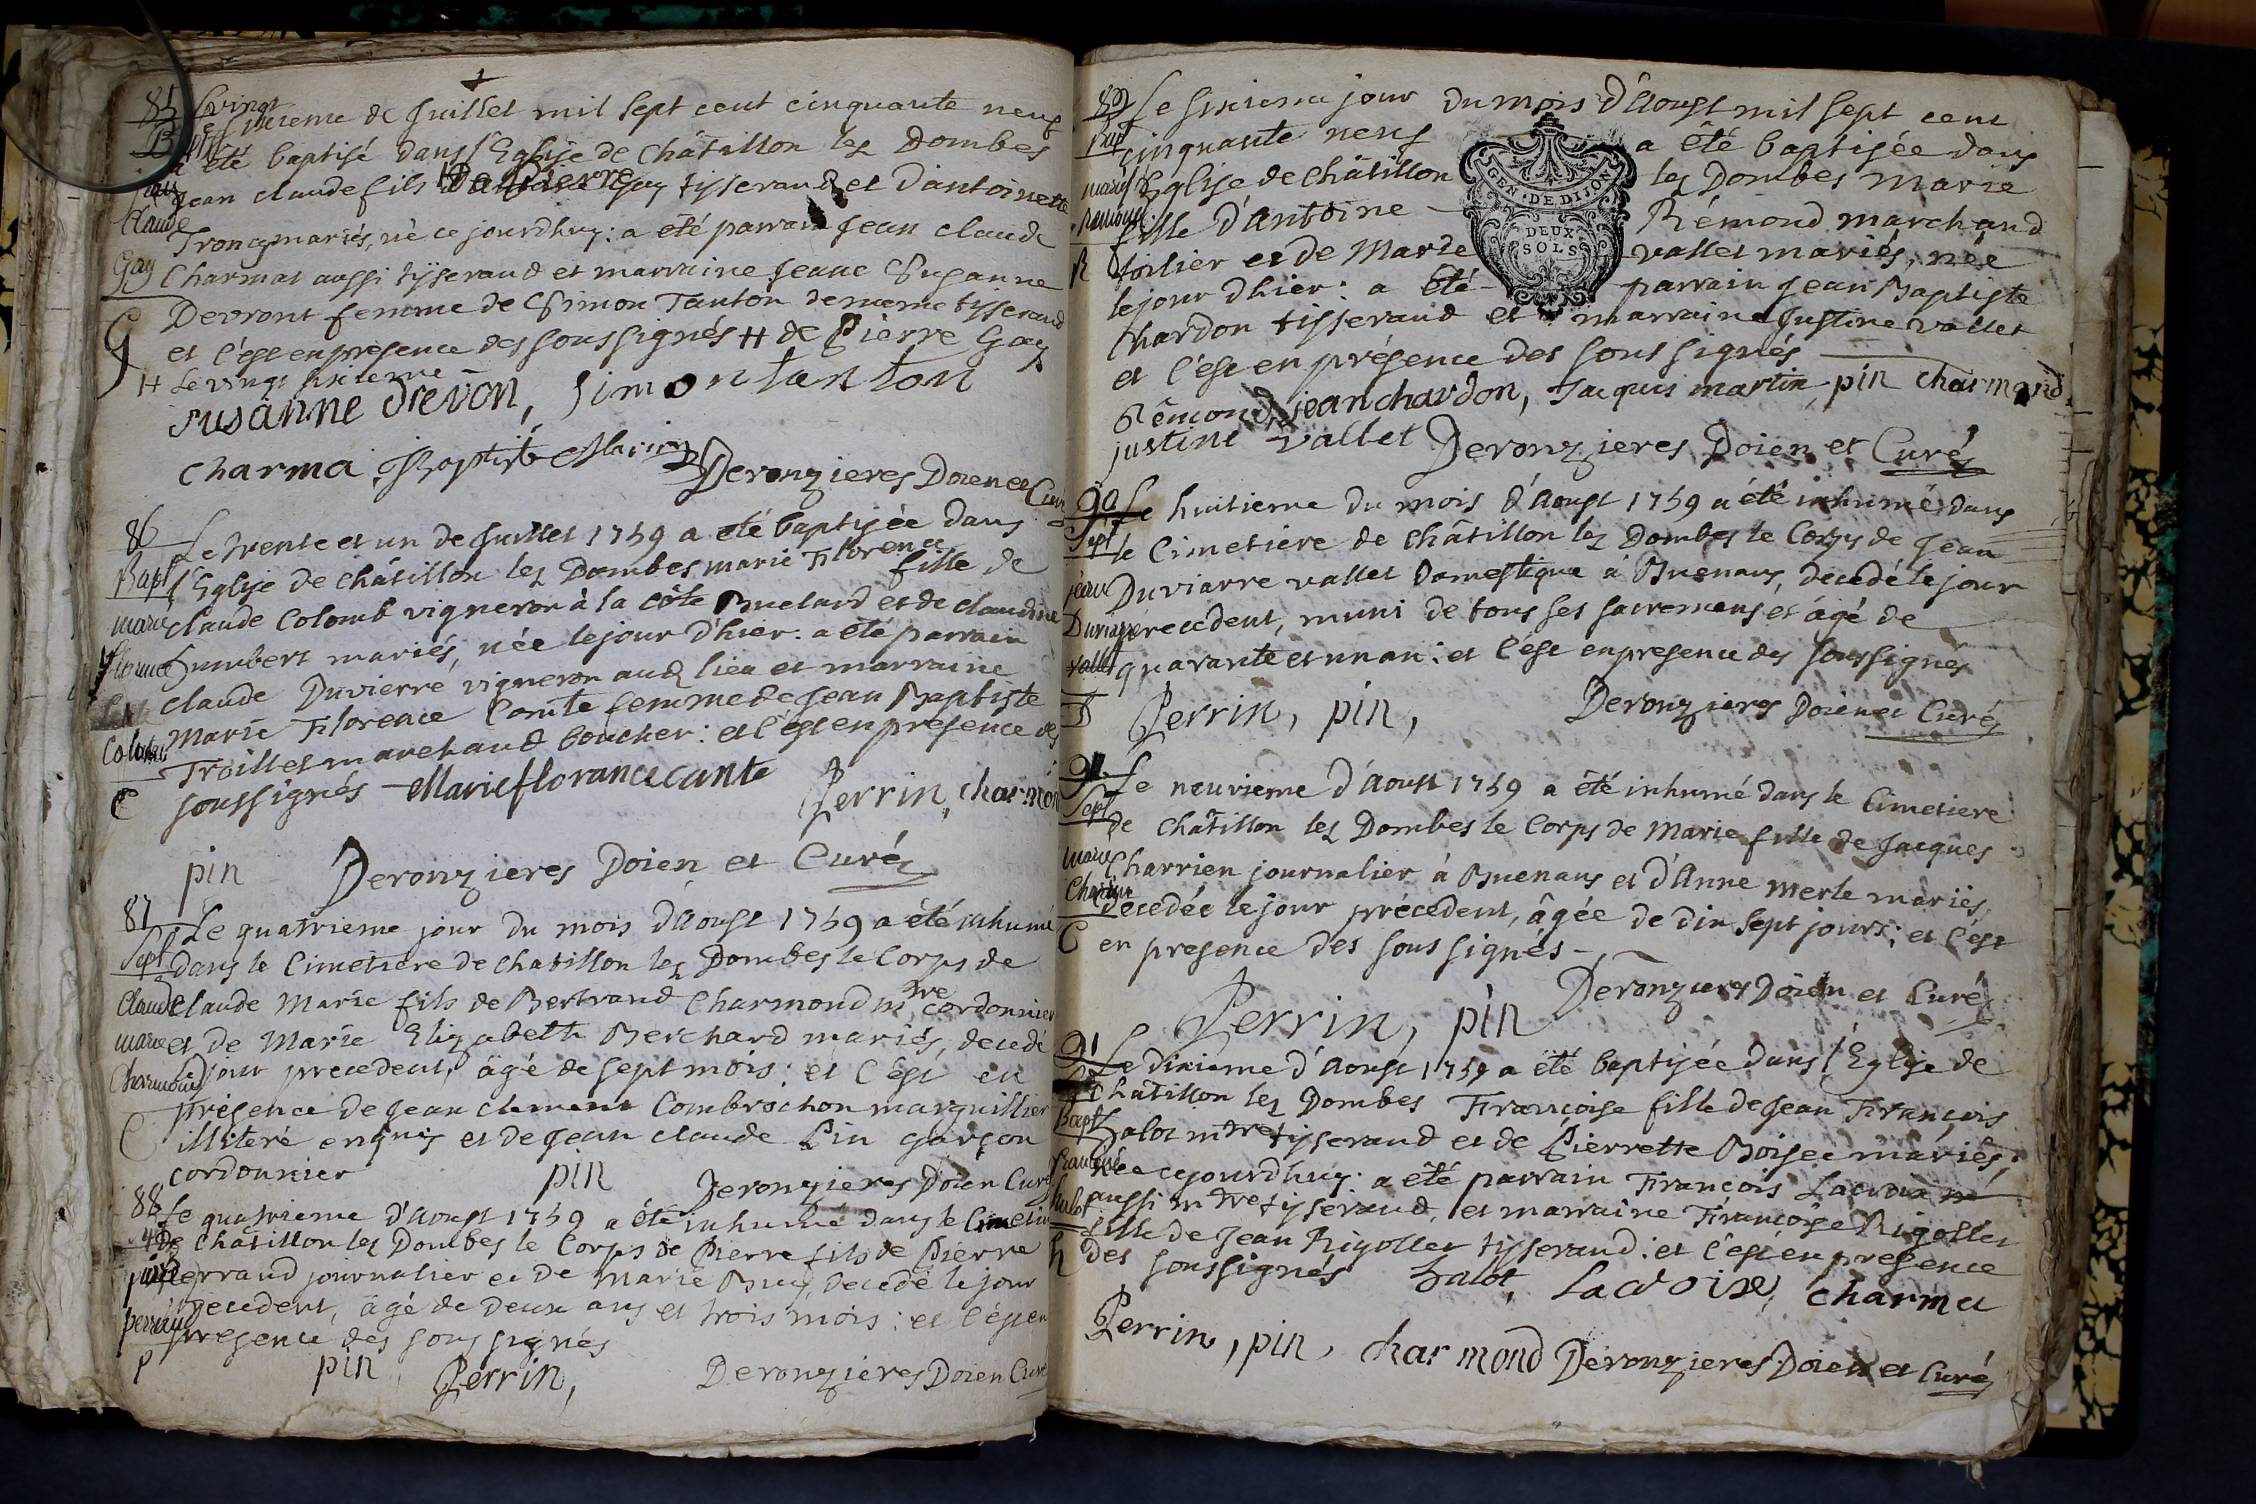 85
Bapt
jean
Claude
Gay
G
Le vingt
sixieme de Juillet mil sept cent cinquante neuf
a été baptisé dans l'Eglise de Châtillon les Dombes
jean claude fils H de Pierre Gay tisserand et d'antoinette
Troncy mariés, né ce jourdhuy: a été parrain Jean claude
Charmat aussi tisserand et marraine Jeane Susanne
Devront femme de Simon Tanton de meme tisserand
et c'est en presence des soussignés H de Pierre Gay
H Le vingt sixieme
susanne drevon, simon tanton
charma Baptiste Deronzieres Doien et Curé
86
Bapt
marie
florence
Colomb
C
Le trente et un de Juillet 1759 a été baptisée dans
l'Eglise de châtillon les Dombes marie Florence fille de
claude Colomb vigneron à la côte Buelard et de claudine
humbert mariés, née le jour d'hier: a été parrain
claude Duvierré vigneron aud lieu et marraine
Marie Florence Comte femme de Jean Baptiste
Troillet marchand boucher: et c'est en presence des
soussignés Marie florance cante Perrin, charmond
pin Deronzieres Doien et Curé
87
Sept
claude
marie
Charmond
C
Le quatrieme jour du mois d'Aoust 1759 a été inhumé
dans le Cimetiere de chatillon les Dombes le Corps de
claude Marie fils de Bertrand Charmond mtre cordonnier
et de Marie Elizabeth Berchard mariés, decedé
le jour precedent, âgé de sept mois: et c'est en
présence de Jean clement Combrochon marguillier
illiteré enquis et de Jean claude Pin garçon
cordonnier pin Deronzieres Doien Curé
88
perraud
P
Le quatrieme d'Aoust 1759 a été inhumé dans le Cimetiere
de Châtillon les Dombes le Corps de Pierre fils de Pierre
Perraud journalier et de Marie Buy, decedé le jour
precedent, âgé de deux ans et trois mois: et c'est en
presence des soussignés
pin Perrin, Deronzieres Doien Curé
89
Bap
marie
Remond
R
Le sixieme jour du mois d'Aoust mil sept cent
cinquante neuf a été baptisée dans
l'Eglise de châtillon les Dombes Marie
fille d'Antoine Rémond marchand
toilier et de Marie vallet mariés, née
le jour d'hier: a été parrain Jean Baptiste
Chardon tisserand et marraine Justine vallet
et c'est en présence des soussignés
GEN. DE DIJON
DEUX
SOLS
Rêmond, jean chardon, Jacques martin, pin charmond
justine vallet Deronzieres Doien et Curé
90
Sept
jean
vallet
D
Le huitieme du mois d'Aoust 1759 a été inhumé dans
le Cimetiere de châtillon les Dombes le Corps de Jean
Duviarre vallet Domestique à Buenans, decedé le jour
precedent, muni de tous ses sacremens et âgé de
quarante et un an: et c'est en presence des soussignés
Perrin, pin, Deronzieres Doien et Curé
91
Sept
marie
Charrien
C
Le neuvieme d'Aoust 1759 a été inhumé dans le Cimetiere
de châtillon les Dombes le Corps de Marie fille de Jacques
Charrien journalier à Buenans et d'Anne Merle mariés,
decedée le jour précedent, âgée de dix sept jours: et c'est
en presence des soussignés
Deronzieres Doien et Curé
Perrin, pin
91
Bapt
françoise
halot
h
Le dixieme d'Aoust 1759 a été baptisée dans l'Eglise de
Châtillon les Dombes Françoise fille de Jean François
halot mtre tisserand et de Pierrette Boisee mariés,
née ce jourdhuy: a été parrain François Lacroix
aussi mtre tisserand, et marraine Françoise Rigollet
fille de Jean Rigollet tisserand: et c'est en presence
des soussignés halot, Lacroix, charma
Perrin, pin, charmond Deronzieres Doien et Curé